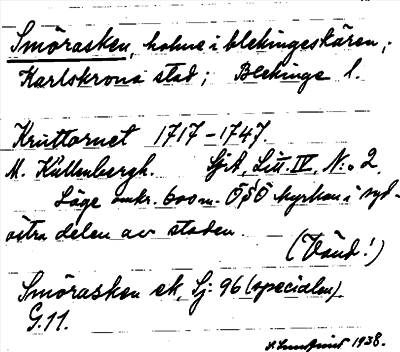 Smörasken, holme i blekingeskären;
Karlskrona stad; Blekinge l.
Kruttornet 1717-1747
M. Kullenbergh. SjA, Litt. IV, N:o 2.
Läge omkr. 600 m. ÖSÖ kyrkan i syd-
östra delen av staden.
(Vänd!)
Smörasken ek, Sj: 96 (specialen)
G.11.
1938.